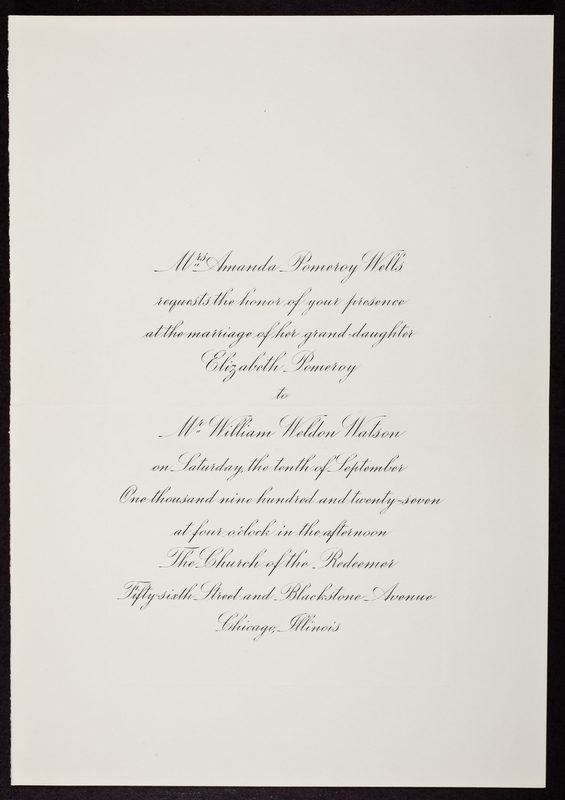 Mrs Amanda Pomeroy Wells
requests the honor of your presence
at the marriage of her grand-daughter
Elizabeth Pomeroy
to
Mr William Weldon Watson
on Saturday, the tenth of September
One thousand nine hundred and twenty-seven
at four o'clock in the afternoon
The Church of the Redeemer
Fifty-sixth Street and Blackstone Avenue
Chicago, Illinois